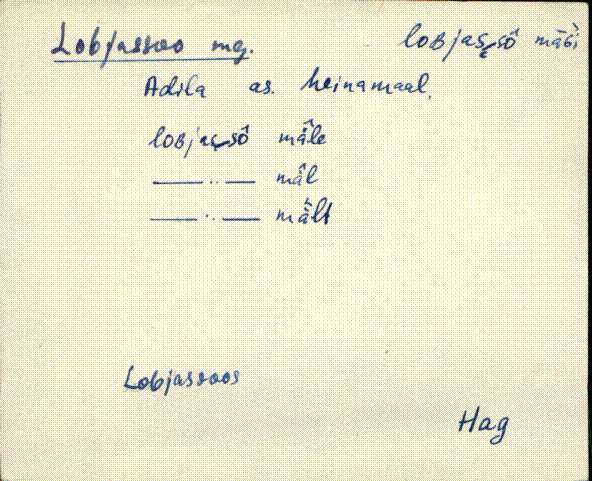 Lobjassoo mg. loʙjas̬sô mäǵi
Adila as. heinamaal.
loʙjassô mäle
—— ·· —— mäl
—— ·· —— mält
Lobjassoos
Hag